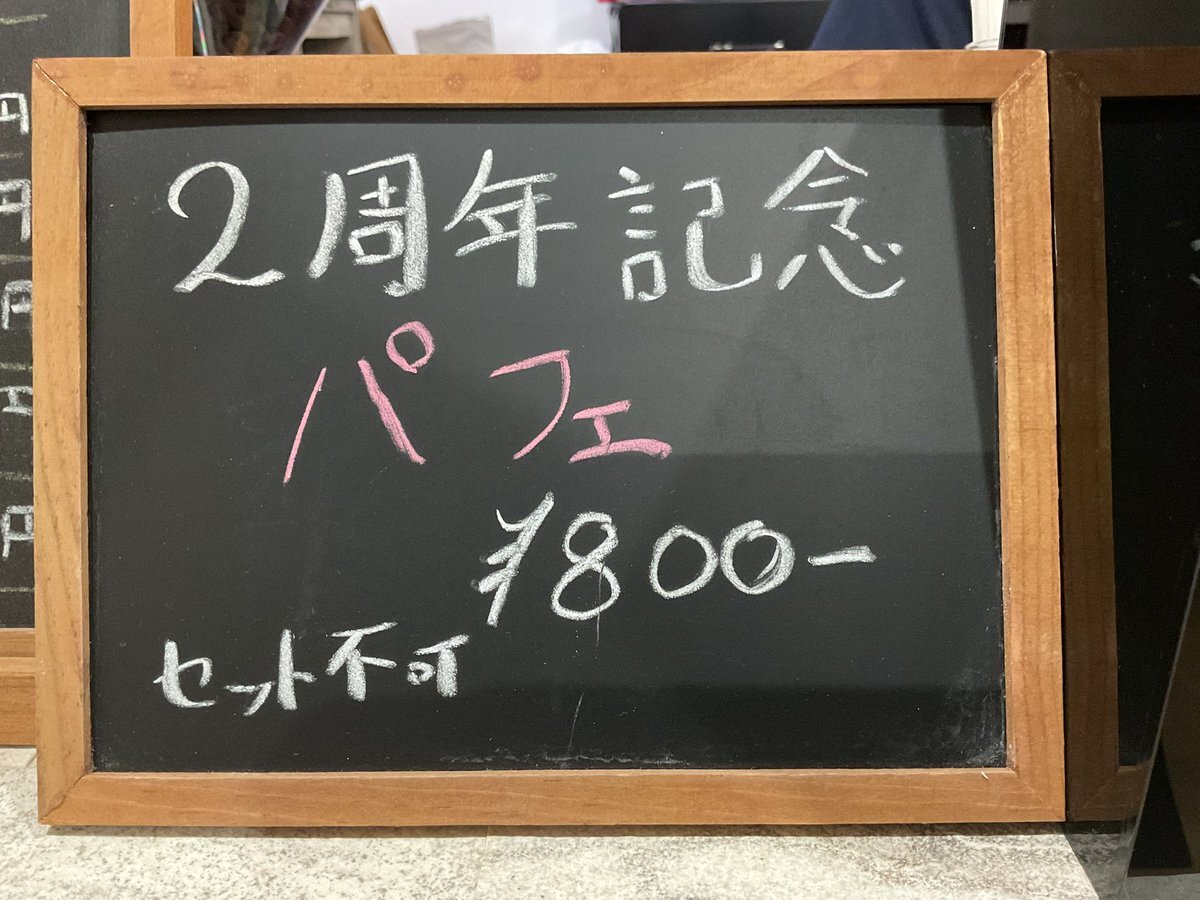 円
円
円
円
２周年記念
パフェ
¥800-
セット不可